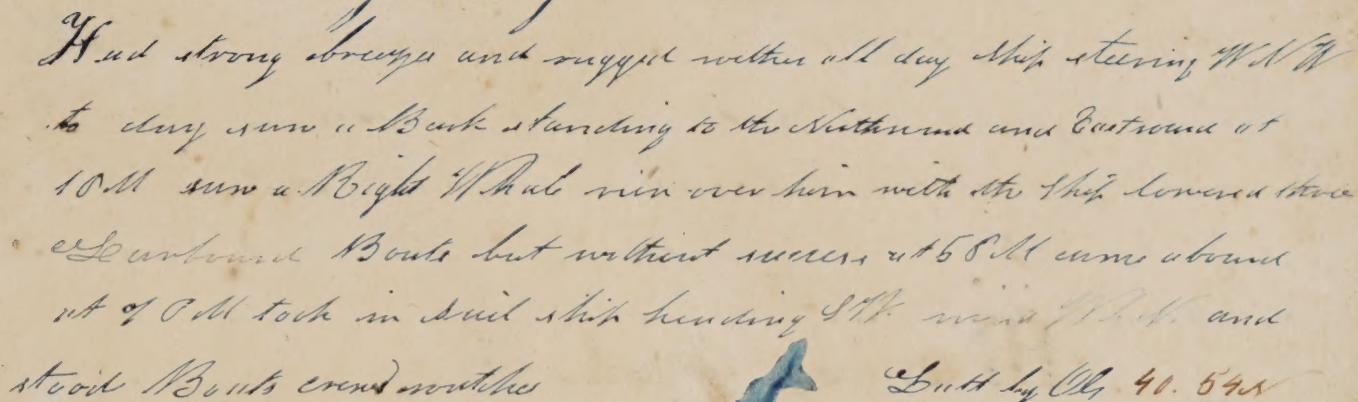 Had strong breeze and rugged wether all day ship steering W N W
to day saw a Bark standing to the Northward and Eastward at
1 P M saw a Right Whale run over him with the ship lowered three
Larboard Boats but without success at 5 P M came aboard
at 7 P M took in sail ship heading S W wind and
stood Boats crew watches
Latt by Ob 40. 54